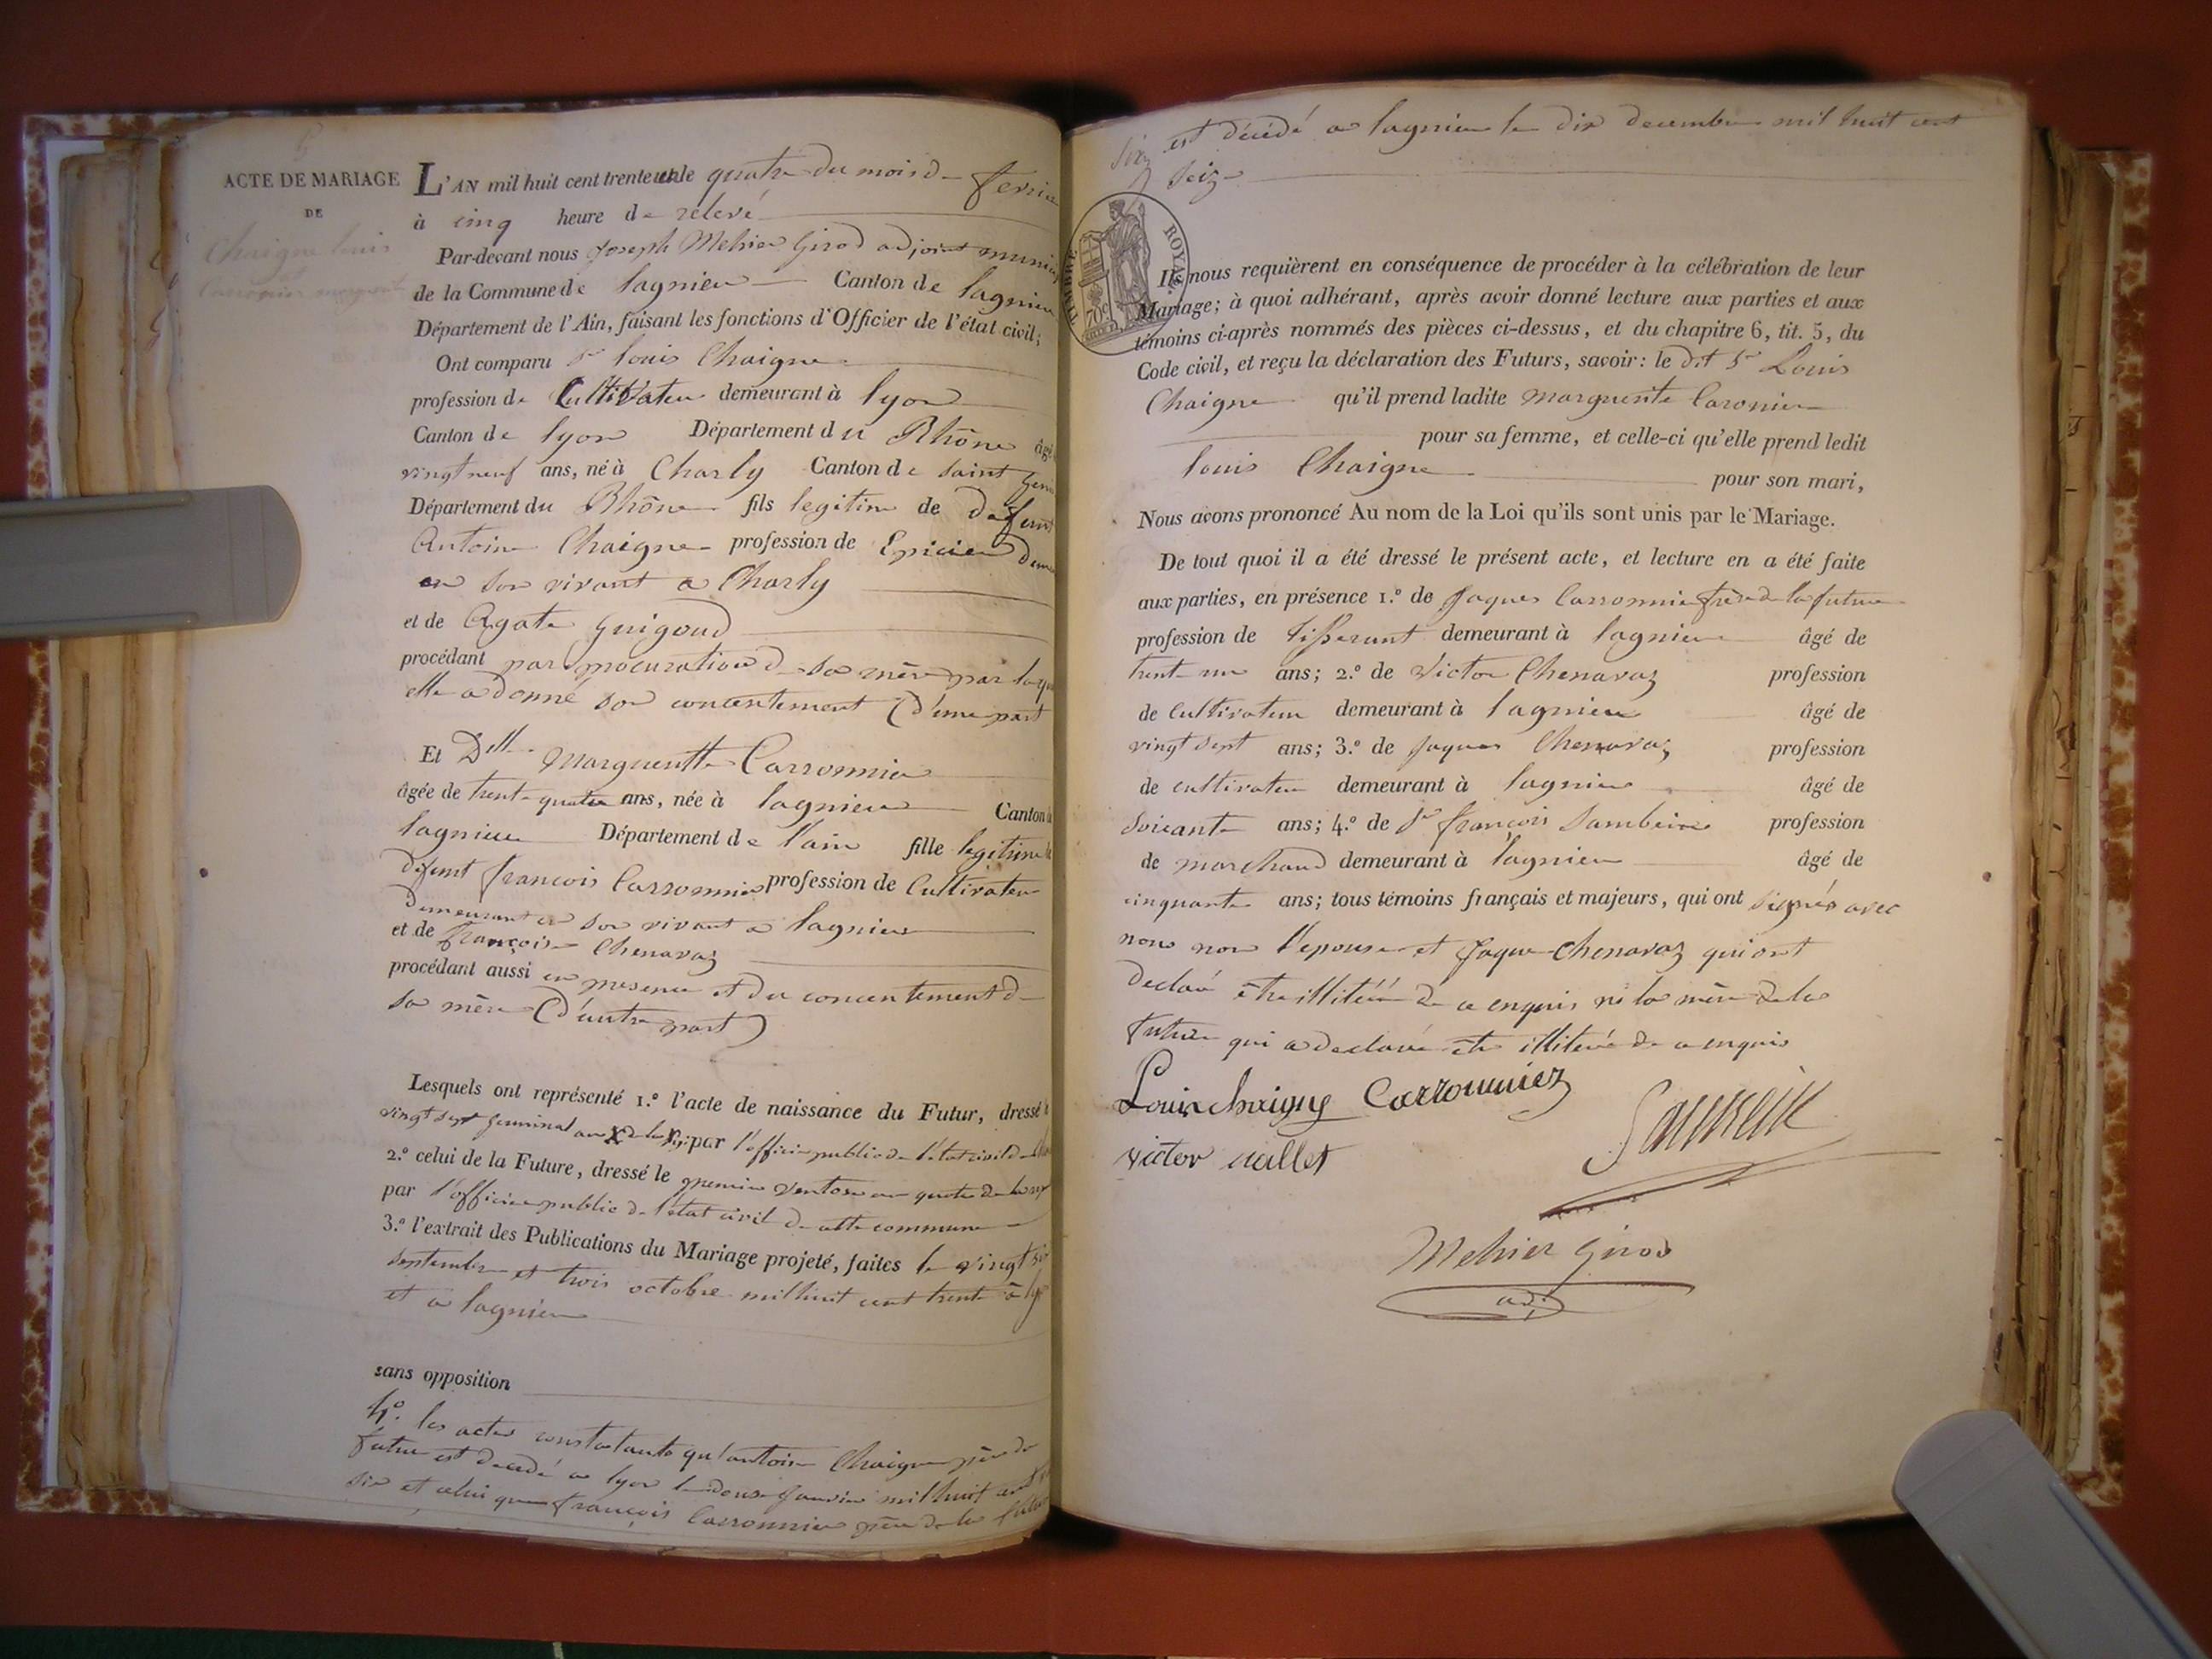 ACTE DE MARIAGE
DE
Chaigne louis
L'AN mil huit cent trente et un le quatre du mois de fevrier
à cinq heure de relevé
Par-devant nous Joseph Mehier Girod adjoint munici
de la Commune de lagnieu Canton de lagnieu
Département de l'Ain, faisant les fonctions d'Officier de l'état civil;
Ont comparu Sr louis Chaigne
profession de Cultivateur demeurant à lyon
Canton de lyon Département du Rhône âgé
vingt neuf ans, né à Charly Canton de saint Geni
Département du Rhône fils legitime de defunt
Antoine Chaigne profession de Epicier deme
en son vivant a Charly
et de Agate Guigoud
procédant par procuration de sa mère par laqu
elle a donné son concentement (d'une part
Et Dlle Margueritte Carronnier
âgée de trente quatre ans, née à lagnieu Canton de
lagnieu Département de l'ain fille legitime de
defunt françois Carronnier profession de Cultivateur
demeurant en son vivant a lagnieu
et de françoise Chenavaz
procédant aussi en presence et du concentement de
sa mère (d'autre part)
Lesquels ont représenté 1.º l'acte de naissance du Futur, dressé le
vingt sept germinal an X de la par l'officier public de l'état civil de
2.º celui de la Future, dressé le premier ventose an quatre de la rep
par l'officier public de l'état civil de cette commune
3.º l'extrait des Publications du Mariage projeté, faites le vingt six
septembre et trois octobre mil huit cent trente à lyo
et a lagnieu
sans opposition
4º. les actes constatants qu'antoine Chaigne père du
futur est decedé a lyon le douse janvier mil huit cent
six et celui que françois Carronnier père de la future
est décédé a lagnieu le dix decembre mil huit cent
seize
TIMBRE ROYAL
70c
Ils nous requièrent en conséquence de procéder à la célébration de leur
Mariage; à quoi adhérant, après avoir donné lecture aux parties et aux
témoins ci-après nommés des pièces ci-dessus, et du chapitre 6, tit. 5, du
Code civil, et reçu la déclaration des Futurs, savoir: le dit Sr Louis
Chaigne qu'il prend ladite marguerite Caronnier
pour sa femme, et celle-ci qu'elle prend ledit
louis Chaigne pour son mari,
Nous avons prononcé Au nom de la Loi qu'ils sont unis par le Mariage.
De tout quoi il a été dressé le présent acte, et lecture en a été faite
aux parties, en présence 1.º de Jaques Carronnier frère de la future
profession de tisserant demeurant à lagnieu âgé de
trente un ans; 2.º de Victor Chenavaz profession
de Cultivateur demeurant à lagnieu âgé de
vingt sept ans; 3.º de Jaques Chenavaz profession
de cultivateur demeurant à lagnieu âgé de
soixante ans; 4.º de Sr françois profession
de marchand demeurant à lagnieu âgé de
cinquante ans; tous témoins français et majeurs, qui ont signés avec
nous non l'épouse et Jaque Chenavaz qui ont
declaré être illitéré de ce enquis ni la mère de la
future qui a declaré etre illiteré de ce enquis
Louis chaigne Carronniez
victor
Mehier Girod
adj